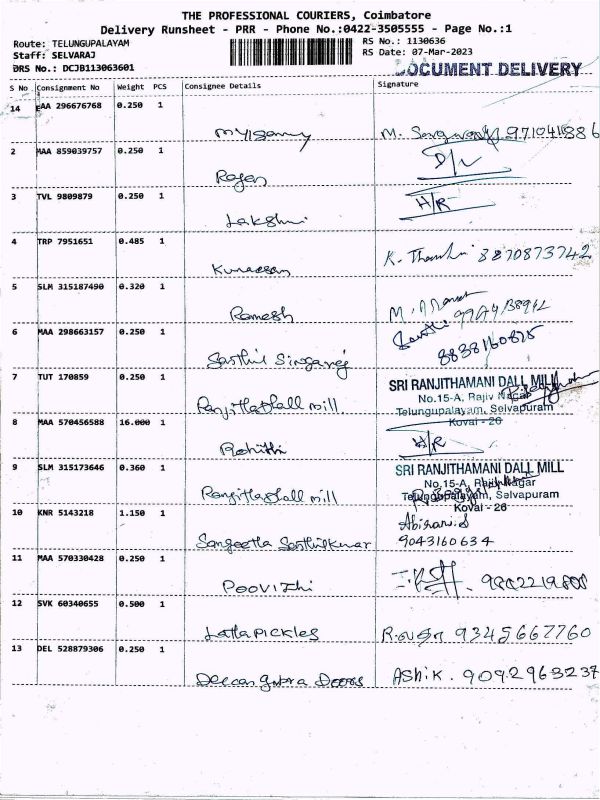 THE PROFESSIONAL COURIERS, Coimbatore
Delivery Runsheet - PRR - Phone No.:0422-3505555 - Page No.:1
Route: TELUNGUPALAYAM
Staff: SELVARAJ
DRS No.: DCJB113063601
RS No.: 1130636
RS Date: 07-Mar-2023
DOCUMENT DELIVERY
S No Consignment No Weight PCS Consignee Details Signature
14 EAA 296676768 0.250 1
2 MAA 859039757 0.250 1
D/L
Rajan
3 TVL 9809879 0.250 1
H/R
Lakshmi
4 TRP 7951651 0.485 1
K. 8870873742
Kumaresan
5 SLM 315187490 0.320 1
Ramesh
6 MAA 298663157 0.250 1
8838160875
7 TUT 170859 0.250 1
SRI RANJITHAMANI DALL MILL
No.15-A, Rajiv Nagar
Telungupalayam, Selvapuram
Kovai - 26
mill
8 MAA 570456588 16.000 1
H/R
Rohith
9 SLM 315173646 0.360 1
SRI RANJITHAMANI DALL MILL
No.15-A, Rajiv Nagar
Telungupalayam, Selvapuram
Kovai - 26
mill
10 KNR 5143218 1.150 1
9043160634
Sangeetha Senthilkumar
11 MAA 570330428 0.250 1
Poovizhi
12 SVK 60340655 0.500 1
Latha Pickles
9345667760
13 DEL 528879306 0.250 1
Ashik. 9092963237
Doors